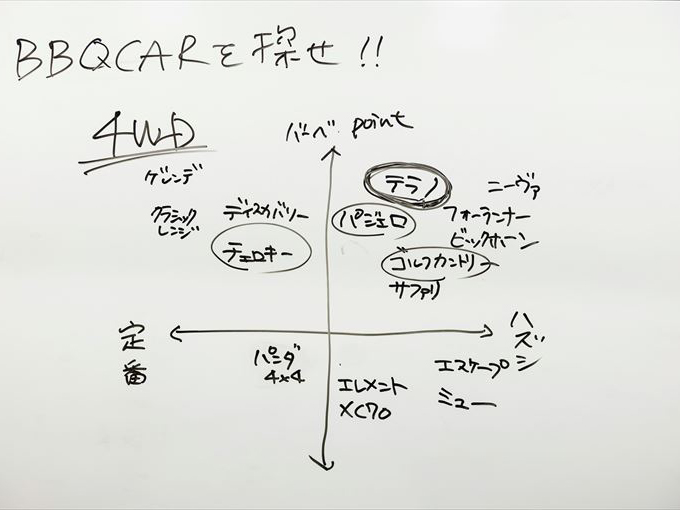 BBQCARを探せ!!
4WD
バーベ point
ゲレンデ
テラノ
ニーヴァ
クラシック
レンジ
ディスカバリー
パジェロ
フォーランナー
ビックホーン
チェロキー
ゴルフカントリー
サファリ
定番
ハズシ
パンダ
4×4
エスケープ
エレメント
XC70
ミュー